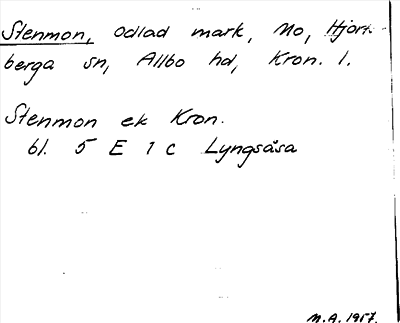 Stenmon, odlad mark, No, Hjort-
berga sn, Allbo hd, Kron. l.
Stenmon ek Kron.
bl. 5 E 1 c Lyngsåsa
M.A. 1957.